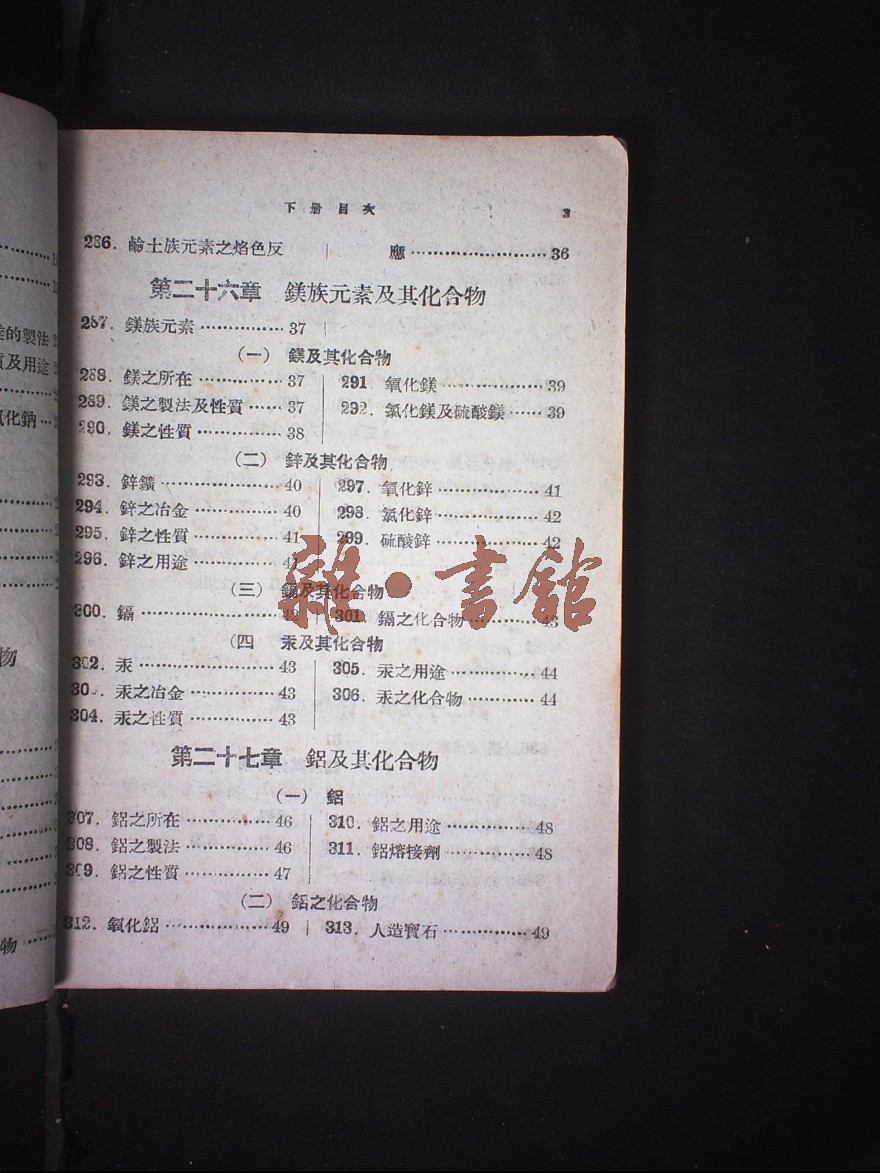 下冊目次 3
286. 鹼土族元素之焰色反應 36
第二十六章 鎂族元素及其化合物
287. 鎂族元素 37
(一) 鎂及其化合物
288. 鎂之所在 37
289. 鎂之製法及性質 37
290. 鎂之性質 38
291. 氧化鎂 39
292. 氯化鎂及硫酸鎂 39
(二) 鋅及其化合物
293. 鋅鑛 40
294. 鋅之冶金 40
295. 鋅之性質 41
296. 鋅之用途
297. 氧化鋅 41
298. 氯化鋅 42
299. 硫酸鋅 42
(三) 鎘及其化合物
300. 鎘
301. 鎘之化合物 43
(四 汞及其化合物
302. 汞 43
30 . 汞之冶金 43
304. 汞之性質 43
305. 汞之用途 44
306. 汞之化合物 44
第二十七章 鋁及其化合物
(一) 鋁
307. 鋁之所在 46
308. 鋁之製法 46
309. 鋁之性質 47
310. 鋁之用途 48
311. 鋁熔接劑 48
(二) 鋁之化合物
312. 氧化鋁 49
313. 人造寶石 49
雜·書館
的製法
及用途
化鈉
物
物